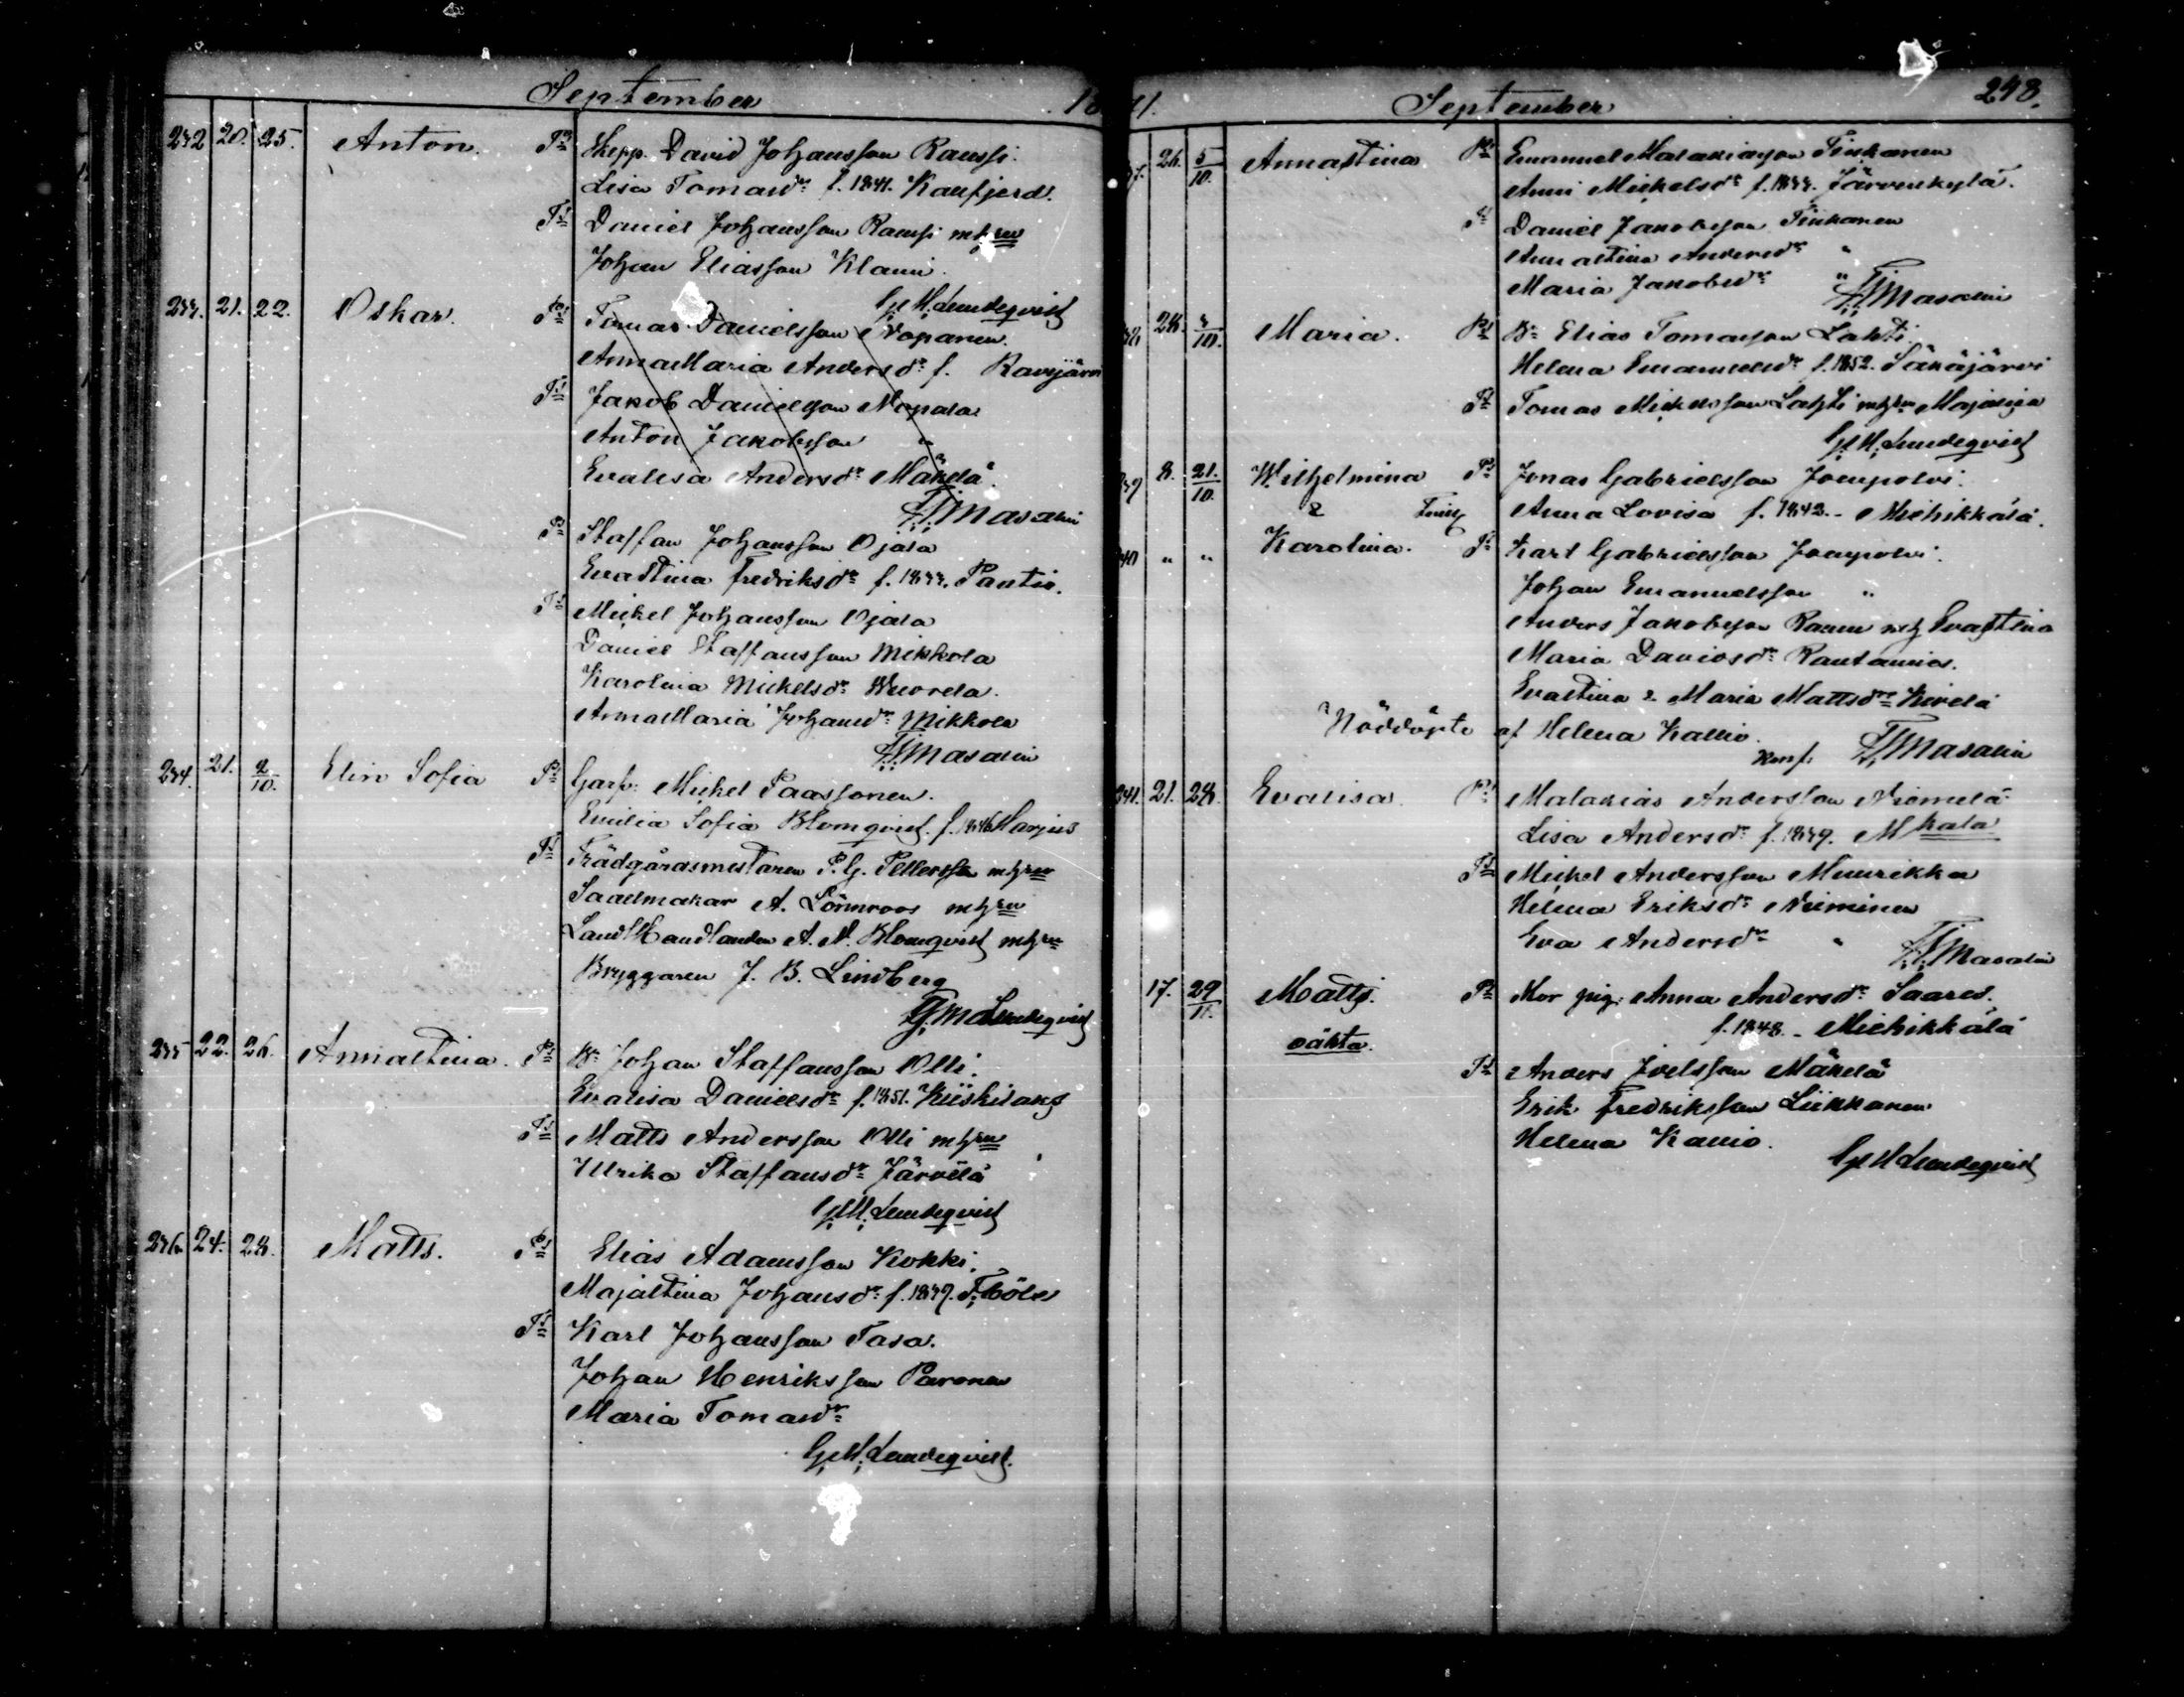 September
232 20. 25. Anton. Prs Skepp. David Johansson Raussi.
Lisa Tomasdr f. 1841. Kaufjerd.
Ts Daniel Johansson Raussi mhru
Johan Eliasson Klami.
G.M. Lundeqvist
233. 21. 22. Oskar. Prs Tomas Danielsson Nopanen.
Anna Maria Andersdr f. Ravijärvi
Ts Jakob Danielsson Nopala
Anton Jakobsson "
Evalisa Andersdr Mäkelä.
Masalin
Ps Staffan Johansson Ojala
Evastina Fredriksdr f. 1833. Pantio.
Ts Mickel Johansson Ojala
Daniel Staffansson Mikkola
Karolina Mickelsdr Wuorela.
Anna Maria Johansdr Mikkola
Masalin
234. 21. 2/10. Elin Sofia Ps Garf. Mickel Paassonen.
Emilia Sofia Blomqvist f. 1846 Marjus
Ts Trädgårdsmestaren P. G. Pettersson mhru
Sadelmakar A. Lönnroos mhru
Landthandlanden A. N. Blomqvist mhru
Bryggaren J. B. Lindberg
G M Lundeqvist
235 22. 26. Annastina. Ps Br Johan Staffansson Olli.
Evalisa Danielsdr f. 1851. Kiiskilans
Ts Matts Andersson Olli mhru
Ulrika Staffansdr Järvelä
G.M. Lundeqvist
236 24. 28. Matts. Prs Elias Adamsson Kokki.
Majastina Johansdr f. 1837. T.böle
Ts Karl Johansson Tasa.
Johan Henriksson Paronen
Maria Tomasdr
G.M. Lundeqvist.
September 248.
26. 5/10. Annastina Prs Emanuel Malakiasson Tinkanen
Anni Mickelsdr f. 1833. Järvenkylä.
Ts Daniel Jakobsson Tinkanen
Annastina Andersdr "
Maria Jakobsdr "
Masalin
28. Maria. Ps Br Elias Tomasson Lahti.
Helena Emanuelsdr f. 1852. Säkäjärvi
Ts Tomas Mickelsson Lahti mhru Majastina
G.M. Lundeqvist
8. 21/10. Wilhelmina Ps Jonas Gabrielsson Joenpolvi.
& Anna Lovisa f. 1842. - Miehikkälä.
" " Karolina. Ts Karl Gabrielsson Joenpolvi.
Johan Emanuelsson "
Anders Jakobsson Raunu mh Evastina
Maria Davidsdr Rautamies.
Evastina & Maria Mattsdr Kivelä
Nöddöpte af Helena Kallio.
Konf. Masalin
241. 21. 28. Evalisa. Ps Malakias Andersson Niemelä.
Lisa Andersdr f. 1839. Mkala
Ts Mickel Andersson Muurikka
Helena Eriksdr Nieminen
Eva Andersdr "
Masalin
17. 29/11. Matts. Ps Mor pig. Anna Andersdr Saares.
f. 1848 - Miehikkälä
oäkta.
Ts Anders Joelsson Mäkelä
Erik Fredriksson Liikkanen
Helena Kallio.
G.M. Lundeqvist